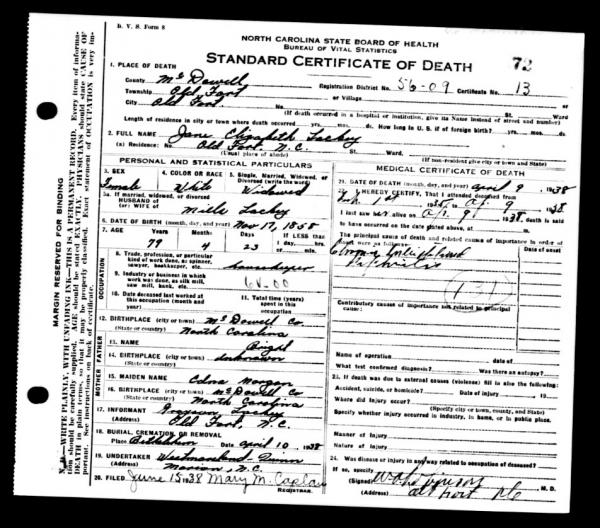 D. V. S. Form 8
NORTH CAROLINA STATE BOARD OF HEALTH
BUREAU OF VITAL STATISTICS
STANDARD CERTIFICATE OF DEATH
72
1. PLACE OF DEATH
County McDowell Registration District No. 56-09 Certificate No. 13
Township Old Fort or Village
City Old Fort No. St. Ward
(If death occurred in a hospital or institution, give its Name instead of street and number)
Length of residence in city or town where death occurred yrs. mos. ds. How long in U. S. if of foreign birth? yrs. mos. ds.
2. FULL NAME Jane Elizabeth Lackey
(a) Residence: No. Old Fort, N.C. St. Ward
(Usual place of abode) (If non-resident give city or town and State)
PERSONAL AND STATISTICAL PARTICULARS
3. SEX 4. COLOR OR RACE 5. Single, Married, Widowed, or Divorced (write the word)
Female White Widowed
5a. If married, widowed, or divorced
HUSBAND of
(or) WIFE of Mille Lackey
6. DATE OF BIRTH (month, day, and year) Nov 17, 1858
7. AGE Years Months Days If LESS than 1 day, hrs. or min.
79 4 23
OCCUPATION
8. Trade, profession, or particular kind of work done, as spinner, sawyer, bookkeeper, etc. housekeeper
9. Industry or business in which work was done, as silk mill, saw mill, bank, etc.
10. Date deceased last worked at this occupation (month and year)
11. Total time (years) spent in this occupation
12. BIRTHPLACE (city or town) McDowell Co
(State or country) North Carolina
FATHER
13. NAME
14. BIRTHPLACE (city or town) unknown
(State or country)
MOTHER
15. MAIDEN NAME Edna Morgan
16. BIRTHPLACE (city or town) McDowell Co
(State or country) North Carolina
17. INFORMANT Lackey
(Address) Old Fort, N.C.
18. BURIAL, CREMATION, OR REMOVAL
Place Bethlehem Date april 10, 1938
19. UNDERTAKER Westmoreland-
(Address) Marion, N.C.
20. FILED June 15 1938 Mary M.
REGISTRAR.
MEDICAL CERTIFICATE OF DEATH
21. DATE OF DEATH (month, day, and year) april 9, 1938
22. I HEREBY CERTIFY, That I attended deceased from
1938, to Ap. 9, 1938
I last saw her alive on Ap. 9, 1938, death is said
to have occurred on the date stated above, at m.
The principal cause of death and related causes of importance in order of onset were as follows: Date of onset
(131)
Contributory causes of importance not related to principal cause:
Name of operation
What test confirmed diagnosis? Was there an autopsy?
23. If death was due to external causes (violence) fill in also the following:
Accident, suicide, or homicide? Date of injury 19
Where did injury occur?
(Specify city or town, county, and State)
Specify whether injury occurred in industry, in home, or in public place
Manner of Injury
Nature of Injury
24. Was disease or injury in any way related to occupation of deceased?
If so, specify
(Signed) M. D.
(Address) old Fort NC
MARGIN RESERVED FOR BINDING
N. B.—WRITE PLAINLY, WITH UNFADING INK—THIS IS A PERMANENT RECORD. Every item of information should be carefully supplied. AGE should be stated EXACTLY. PHYSICIANS should state CAUSE OF DEATH in plain terms, so that it may be properly classified. Exact statement of OCCUPATION is very important. See instructions on back of certificate.